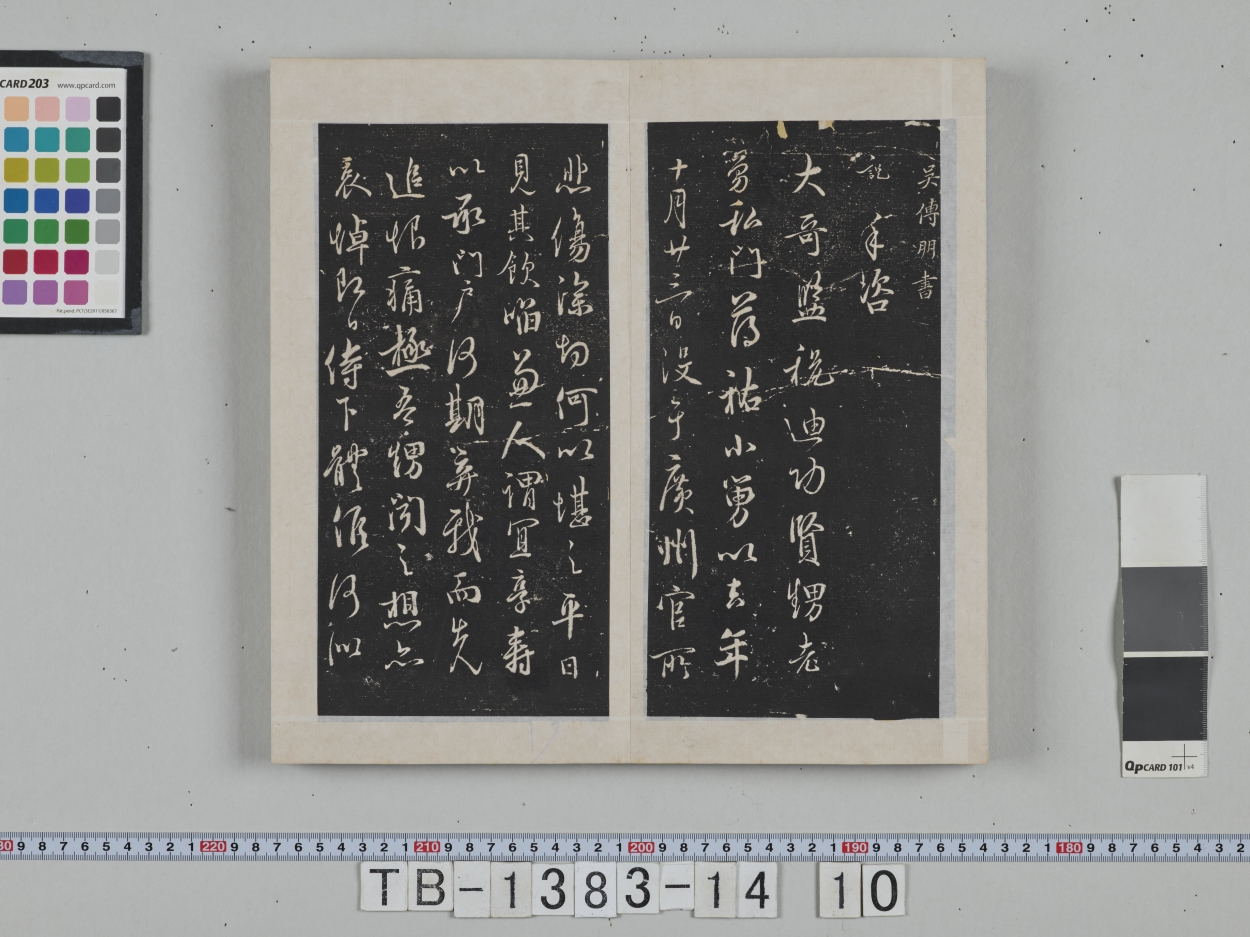 吳傅朋書
說 手咨
大哥監稅迪功賢甥老
舅私門薄祜小舅以去年
十月廿三日沒於廣州官所
悲傷深切何以堪之平日
見其飲啗兼人謂宜享壽
以承門户何期棄我而先
追恨痛極吾甥聞之想亦
哀悼即日侍下體候何似
CARD 203 www.qpcard.com
QPCARD 101 v4
TB-1383-14 10